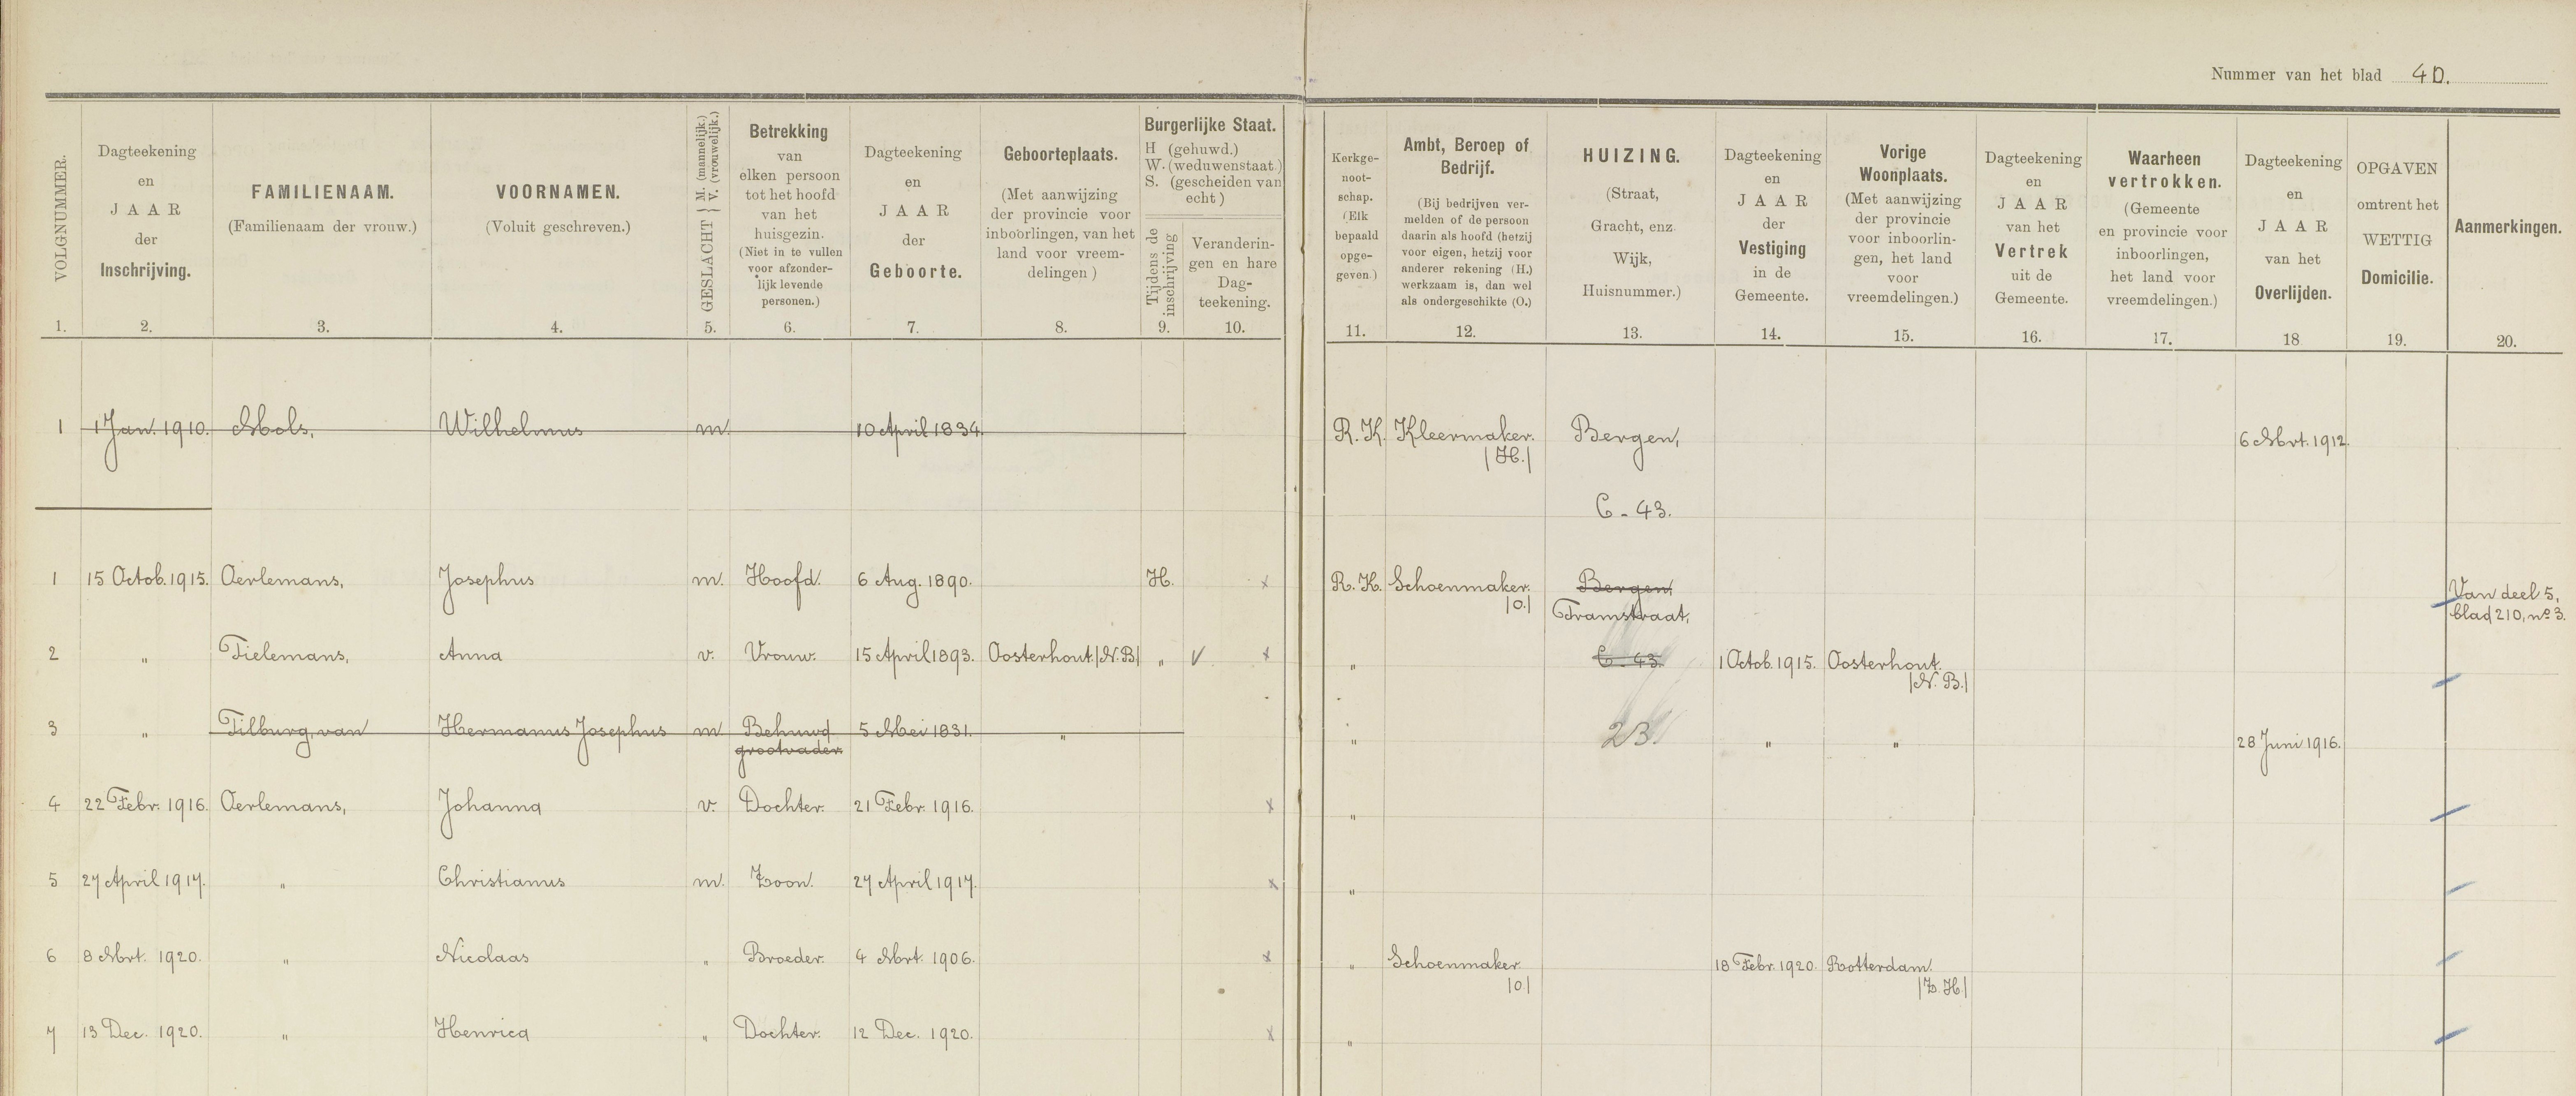 Nummer van het blad 40.
VOLGNUMMER.
1.
Dagteekening
en
JAAR
der
Inschrijving.
2.
FAMILIENAAM.
(Familienaam der vrouw.)
3.
VOORNAMEN.
(Voluit geschreven.)
4.
GESLACHT { M. (mannelijk.)
V. (vrouwelijk.)
5.
Betrekking
van
elken persoon
tot het hoofd
van het
huisgezin.
(Niet in te vullen
voor afzonder-
lijk levende
personen.)
6.
Dagteekening
en
JAAR
der
Geboorte.
7.
Geboorteplaats.
(Met aanwijzing
der provincie voor
inboorlingen, van het
land voor vreem-
delingen)
8.
Burgerlijke Staat.
H (gehuwd.)
W. (weduwenstaat.)
S. (gescheiden van
echt)
Tijdens de
inschrijving
9.
Veranderin-
gen en hare
Dag-
teekening.
10.
Kerkge-
noot-
schap.
(Elk
bepaald
opge-
geven.)
11.
Ambt, Beroep of
Bedrijf.
(Bij bedrijven ver-
melden of de persoon
daarin als hoofd (hetzij
voor eigen, hetzij voor
anderer rekening (H.)
werkzaam is, dan wel
als ondergeschikte (O.)
12.
HUIZING.
(Straat,
Gracht, enz.
Wijk,
Huisnummer.)
13.
Dagteekening
en
JAAR
der
Vestiging
in de
Gemeente.
14.
Vorige
Woonplaats.
(Met aanwijzing
der provincie
voor inboorlin-
gen, het land
voor
vreemdelingen.)
15.
Dagteekening
en
JAAR
van het
Vertrek
uit de
Gemeente.
16.
Waarheen
vertrokken.
(Gemeente
en provincie voor
inboorlingen,
het land voor
vreemdelingen.)
17.
Dagteekening
en
JAAR
van het
Overlijden.
18
OPGAVEN
omtrent het
WETTIG
Domicilie.
19.
Aanmerkingen.
20.
1 1 Jan. 1910. Mols, Wilhelmus m. 10 April 1834. R. K. Kleermaker. Bergen, 6 Mrt. 1912.
|H.|
C - 43.
1 15 Octob. 1915. Oerlemans, Josephus m. Hoofd. 6 Aug. 1890. H. x R. K. Schoenmaker. Bergen, Van deel 5,
|O.| Tramstraat, blad 210, nº 3.
2 " Tielemans, Anna v. Vrouw. 15 April 1893. Oosterhout. |N. B.| " V x " C - 43. 1 Octob. 1915. Oosterhout.
|N. B.|
3 " Tilburg, van Hermanus Josephus m. Behuwd 5 Mei 1831. " " 23. " " 28 Juni 1916.
grootvader.
4 22 Febr. 1916. Oerlemans, Johanna v. Dochter. 21 Febr. 1916. x "
5 27 April 1917. " Christianus m. Zoon. 27 April 1917. x "
6 8 Mrt. 1920. " Nicolaas " Broeder. 4 Mrt. 1906. x " Schoenmaker. 18 Febr. 1920. Rotterdam.
|O.| |Z. H.|
7 13 Dec. 1920. " Henrica " Dochter. 12 Dec. 1920. x "